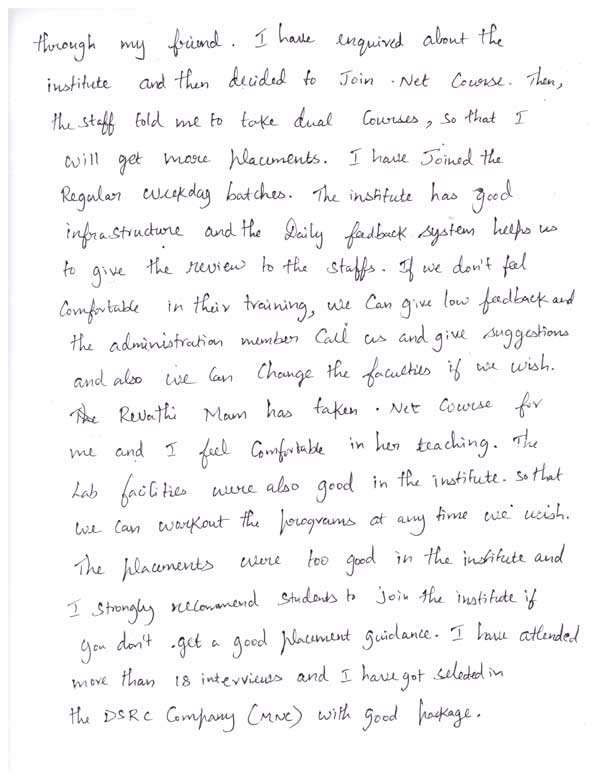 through my friend. I have enquired about the
institute and then decided to Join .Net Course. Then,
the staff told me to take dual Courses, so that I
will get more placements. I have Joined the
Regular weekday batches. The institute has good
infrastructure and the Daily feedback system helps us
to give the review to the staffs. If we don't feel
Comfortable in their training, we Can give low feedback and
the administration member Call us and give suggestions
and also we Can Change the faculties if we wish.
The Revathi Mam has taken .Net Course for
me and I feel Comfortable in her teaching. The
Lab facilities were also good in the institute. So that
we can workout the programs at any time we wish.
The placements were too good in the institute and
I strongly recommend students to join the institute if
you don't get a good placement guidance. I have attended
more than 18 interviews and I have got selected in
the DSRC Company (MNC) with good package.